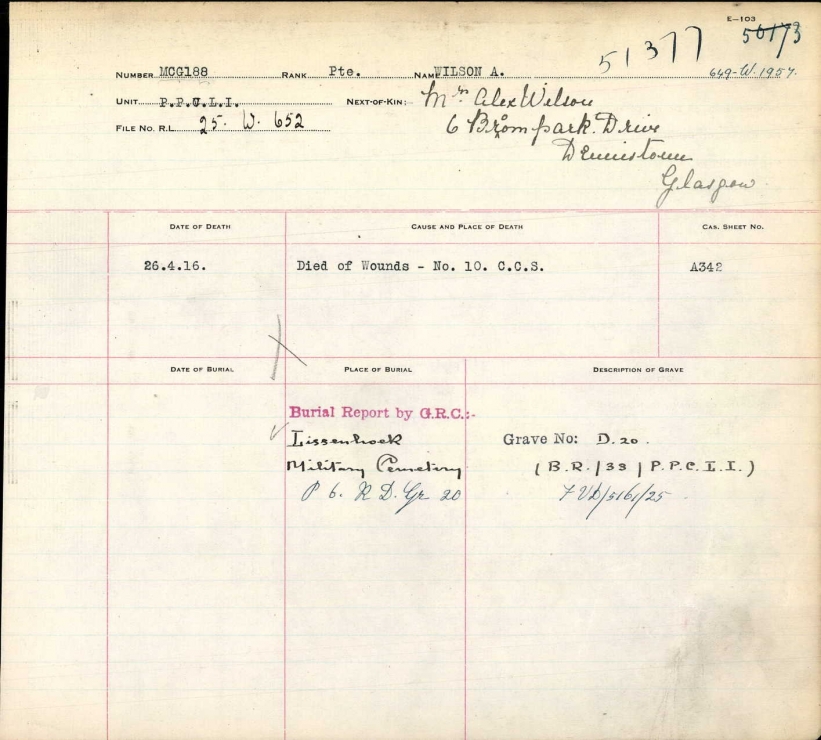 E-103
50173
51377
649-W.1957.
NUMBER MCG188 RANK Pte. NAME WILSON A.
UNIT P.P.C.L.I. NEXT-OF-KIN: Mrs Alex Wilson
FILE NO. R.L. 25. W. 652 6 Broompark Drive
Dennistoun
Glasgow
DATE OF DEATH CAUSE AND PLACE OF DEATH CAS. SHEET NO.
26.4.16. Died of Wounds - No. 10. C.C.S. A342
DATE OF BURIAL PLACE OF BURIAL DESCRIPTION OF GRAVE
Burial Report by G.R.C.:-
Lissenhoek Grave No: D.20.
Military Cemetery (B.R./33/P.P.C.L.I.)
P 6. R D. Gr 20